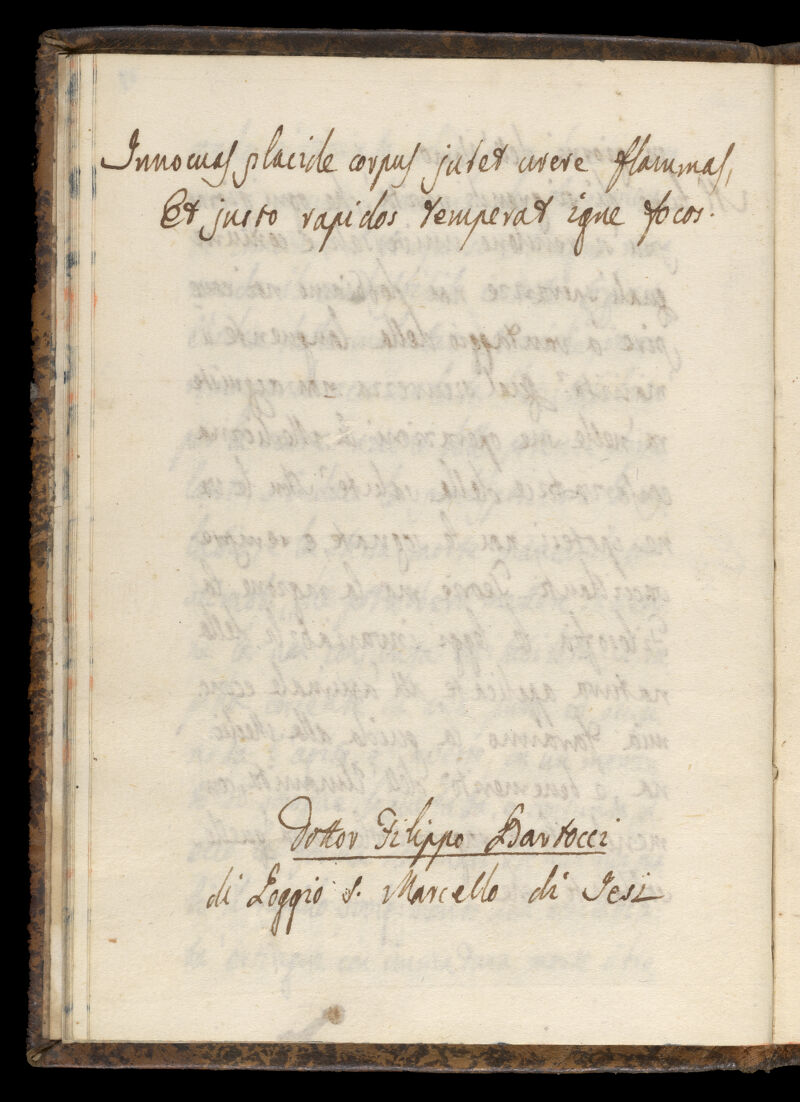 Innocuas placide corpus jubet urere flammas,
Et justo rapidos temperat igne focos.
Dottor Filippo Bartocci
di Poggio S. Marcello di Jesi